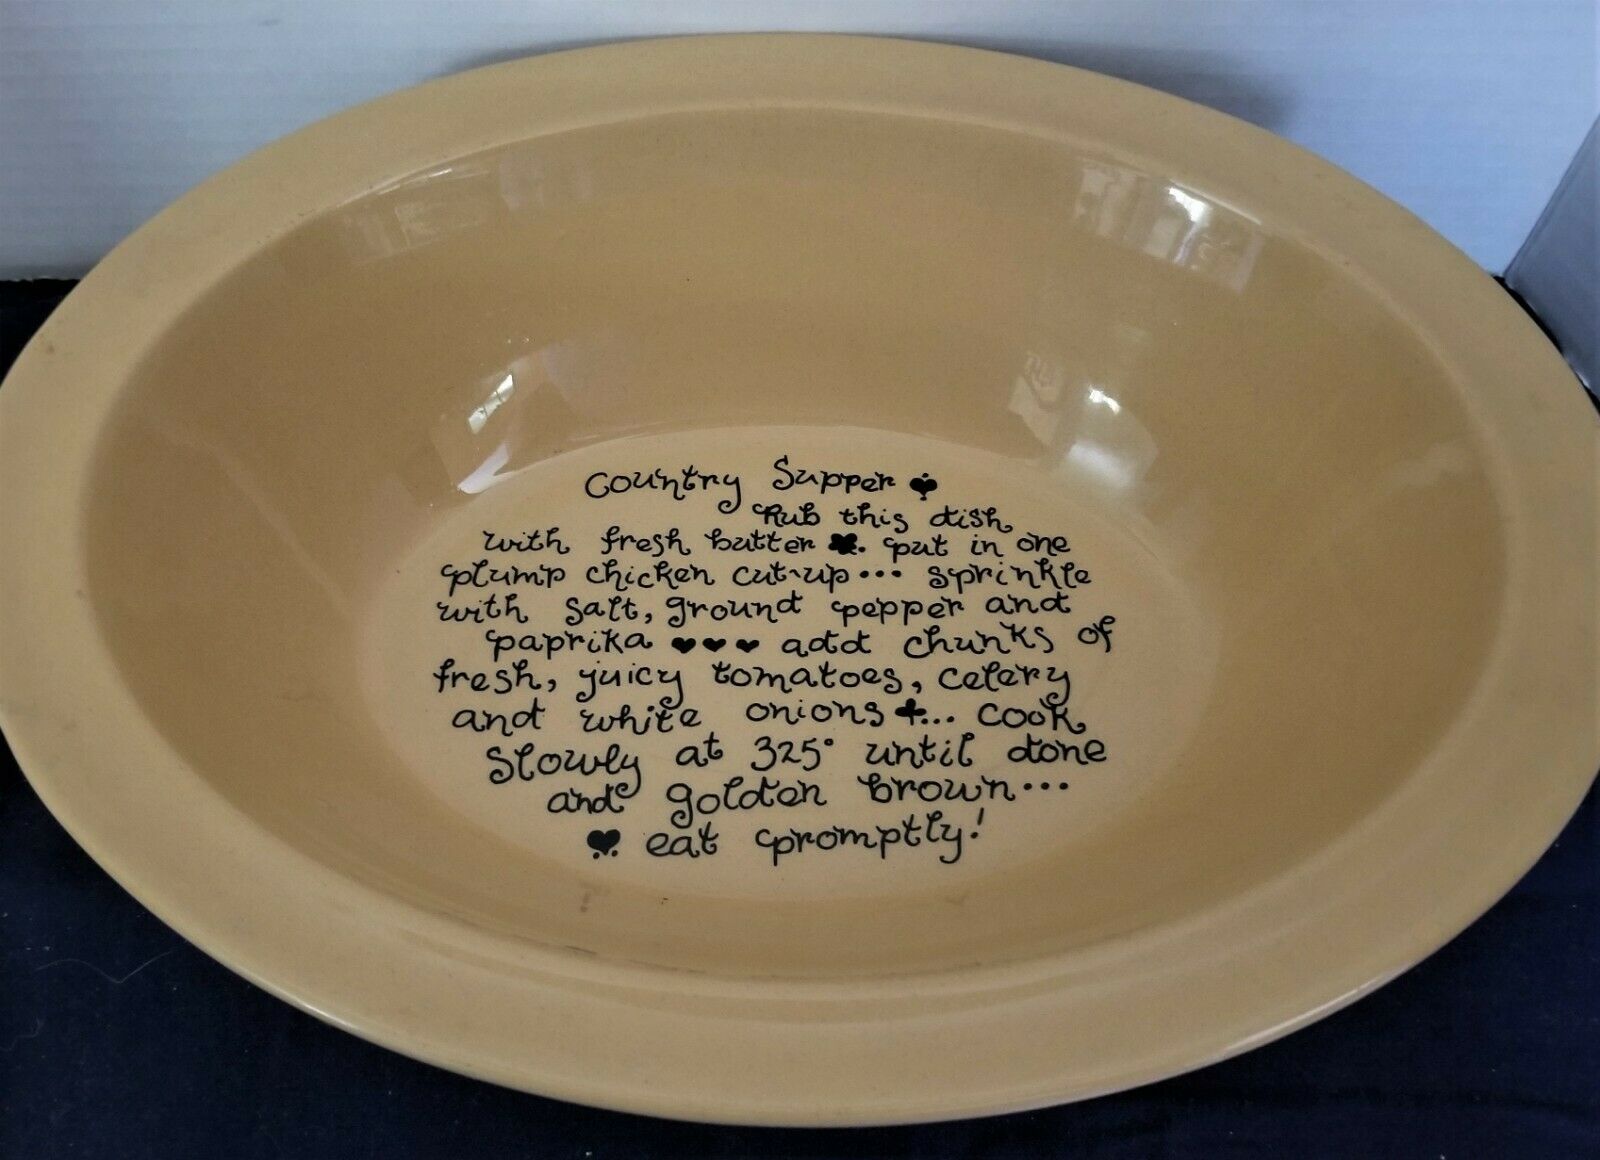 Country Supper
Rub this dish
with fresh butter. put in one
plump chicken cut-up... sprinkle
with salt, ground pepper and
paprika add chunks of
fresh, juicy tomatoes, celery
and white onions... cook
slowly at 325° until done
and golden brown...
eat promptly!